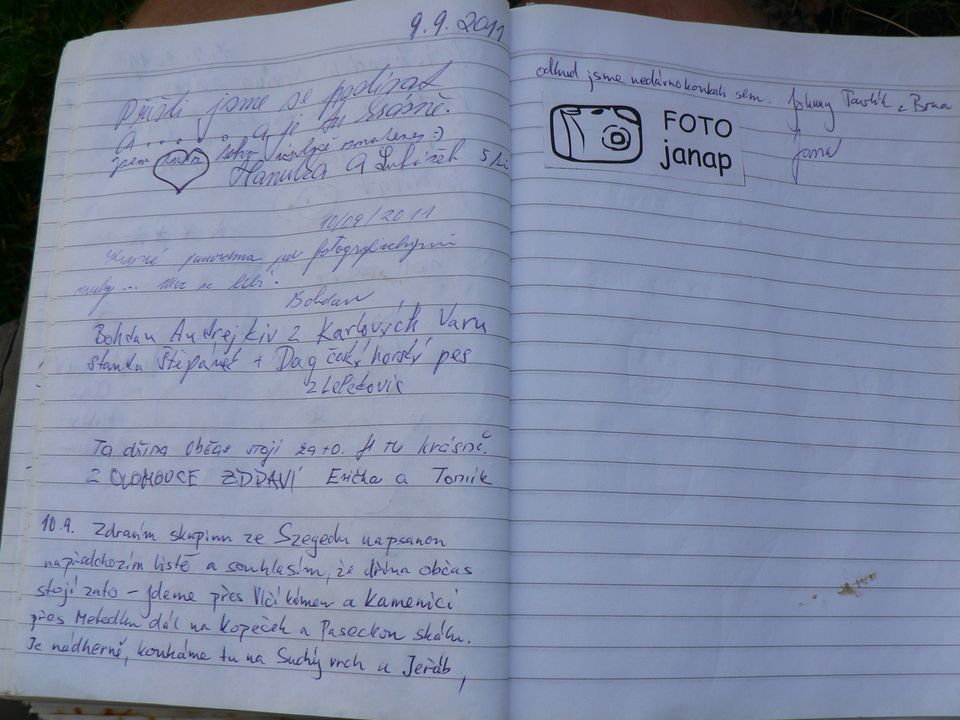 9.9.2011
Přišli jsme se podívat
A...... a je tu krásně.
jsem :)
Hanulka a Lukášek
10/09/2011
panorama
... se líbí!
Bohdan
Bohdan Andrejkiv z Karlových Varů
Stanka Štěpánek + Dag horský pes
z
Ta dřina občas stojí zato. Je tu krásně.
Z OLOMOUCE ZDRAVÍ Erička a Toník
10.9. Zdravím skupinu ze Szegedu napsanou
na předchozím listě a souhlasím, že dřina občas
stojí zato – jdeme přes Vlčí kámen a Kamenici
přes Metodku dál na Kopeček a Paseckou skálu.
Je nádherně, koukáme tu na Suchý vrch a Jeřáb,
odkud jsme nedávno koukali sem. Johnny Pavlík z Brna
Jana
FOTO
janap